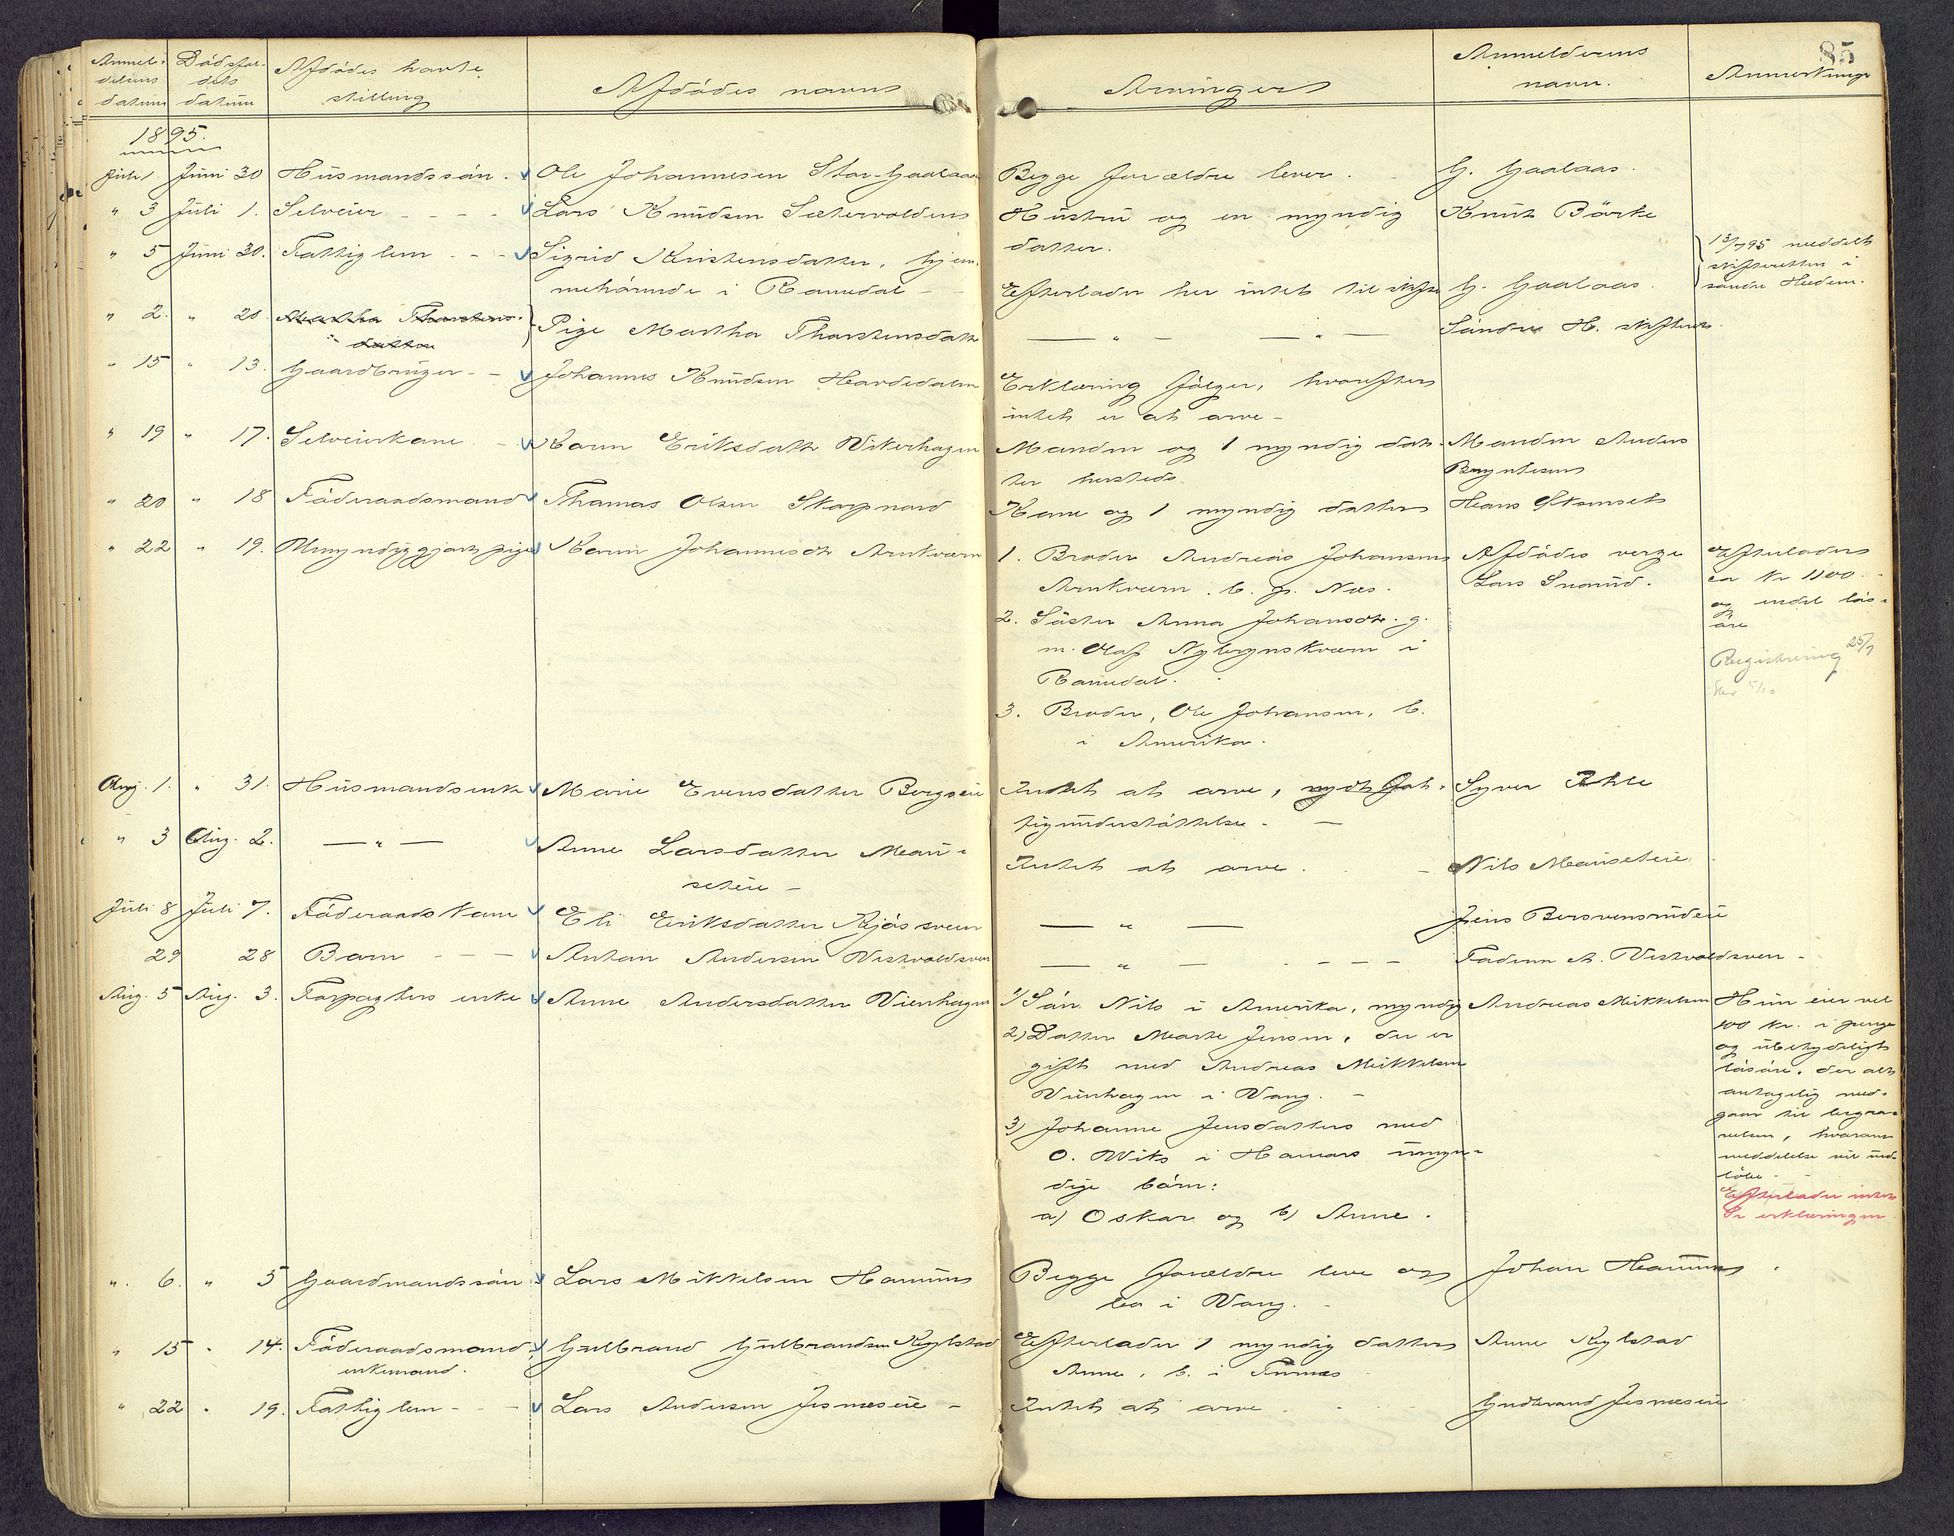 85
Anmeldelsens datum
Dødsfaldets datum
Afdødes havte stilling
Afdødes navn
Arvinger
Anmelderens navn.
Anmerkninge
1895.
Juli 1. Juni 30 Husmandssøn. Ole Johannesen Stor-Gaalaas Begge forældre lever. G. Gaalaas.
" 3 Juli 1. Selveier - - - - Lars Knudsen Sætervolden Hustru og en myndig Knut Børke
datter.
" 5 Juni 30. Fattiglem - - - Sigrid Kristensdatter, hjem-
mehørende i Romedal - Efterlader her intet til skifte G. Gaalaas. 13/7 95 meddelt
skifteretten i
søndre Hedem.
" 2. " 20. Martha Thorstens-
datter
Pige Martha Thorstensdatt — " — — " — Søndre H. skifteret.
" 15 " 13. Gaardbruger - - Johannes Knudsen Hardedalen Erklæring følger, hvorefter
intet er at arve -
" 19 " 17. Selveierkone - - Karen Eriksdatter Vikerhagen Manden og 1 myndig dat- Manden Anders
ter hersteds. Bryntesen
" 20 " 18 Føderaadsmand Thomas Olsen Skarpnord Kone og 1 myndig datter Hans Stenset
" 22 " 19. Umyndiggjort pige Karen Johannesdt Arnkværn 1. Broder Andreas Johansen Afdødes verge Efterlader
Arnkværn. b. p. Næs. Lars Snarud. ca kr 1100.
2. Søster Anna Johansdt. g. og endel løs-
m. Olaf Nybrynskværn i øre
Romedal. Registrering 25/7
3. Broder, Ole Johansen, b. 5/10
i Amerika.
Aug. 1. " 31. Husmandsenke Marie Evensdatter Bergseie Intet at arve, nydt fat- Syver Ihle
tigunderstøttelse. —
" 3 Aug. 2. — " — Anne Larsdatter Mau-
seteie - Intet at arve. - Nils Mauseteie
Juli 8 Juli 7. Føderaadskone Eli Eriksdatter Kjøssveen — " — Jens Bersvensrudeie
29 28 Barn - - - Anton Andersen Vestvoldsven — " — - - - - Faderen A. Vestvoldsven -
Aug. 5 Aug. 3. Forpagters enke Anne Andersdatter Vienhagen 1/ Søn Nils i Amerika, myndig Andreas Mikkelsen Hun eier vel
2) Datter Marte Jensen, der er 100 kr. i penge
gift med Andreas Mikkelsen og ubetydeligt
Vienhagen i Vang. - løsøre, der alt
3) Johanne Jensdatters med antagelig med-
O. Wiks i Hamars umyn- gaar til begra-
dige børn: velsen, hvorom
a) Oskar og b) Anne. meddelelse vil ind-
løbe -
Efterlader intet
Se erklæringen
". 6. " 5 Gaardmandssøn Lars Mikkelsen Hommo Begge forældre leve og Johan Hommo
bo i Vang. -
" 15 " 14. Føderaadsmand, Gulbrand Gulbrandsen Kyllstad Efterlader 1 myndig datter Anne Kylstad
enkemand. Anne, b. i Furnes
" 22 " 19. Fattiglem - - - Lars Andersen Jesneseie - Intet at arve. Gudbrand Jesneseie